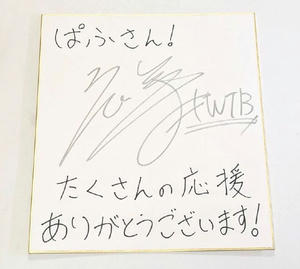 ぱふさん!
#WTB
たくさんの応援
ありがとうございます!